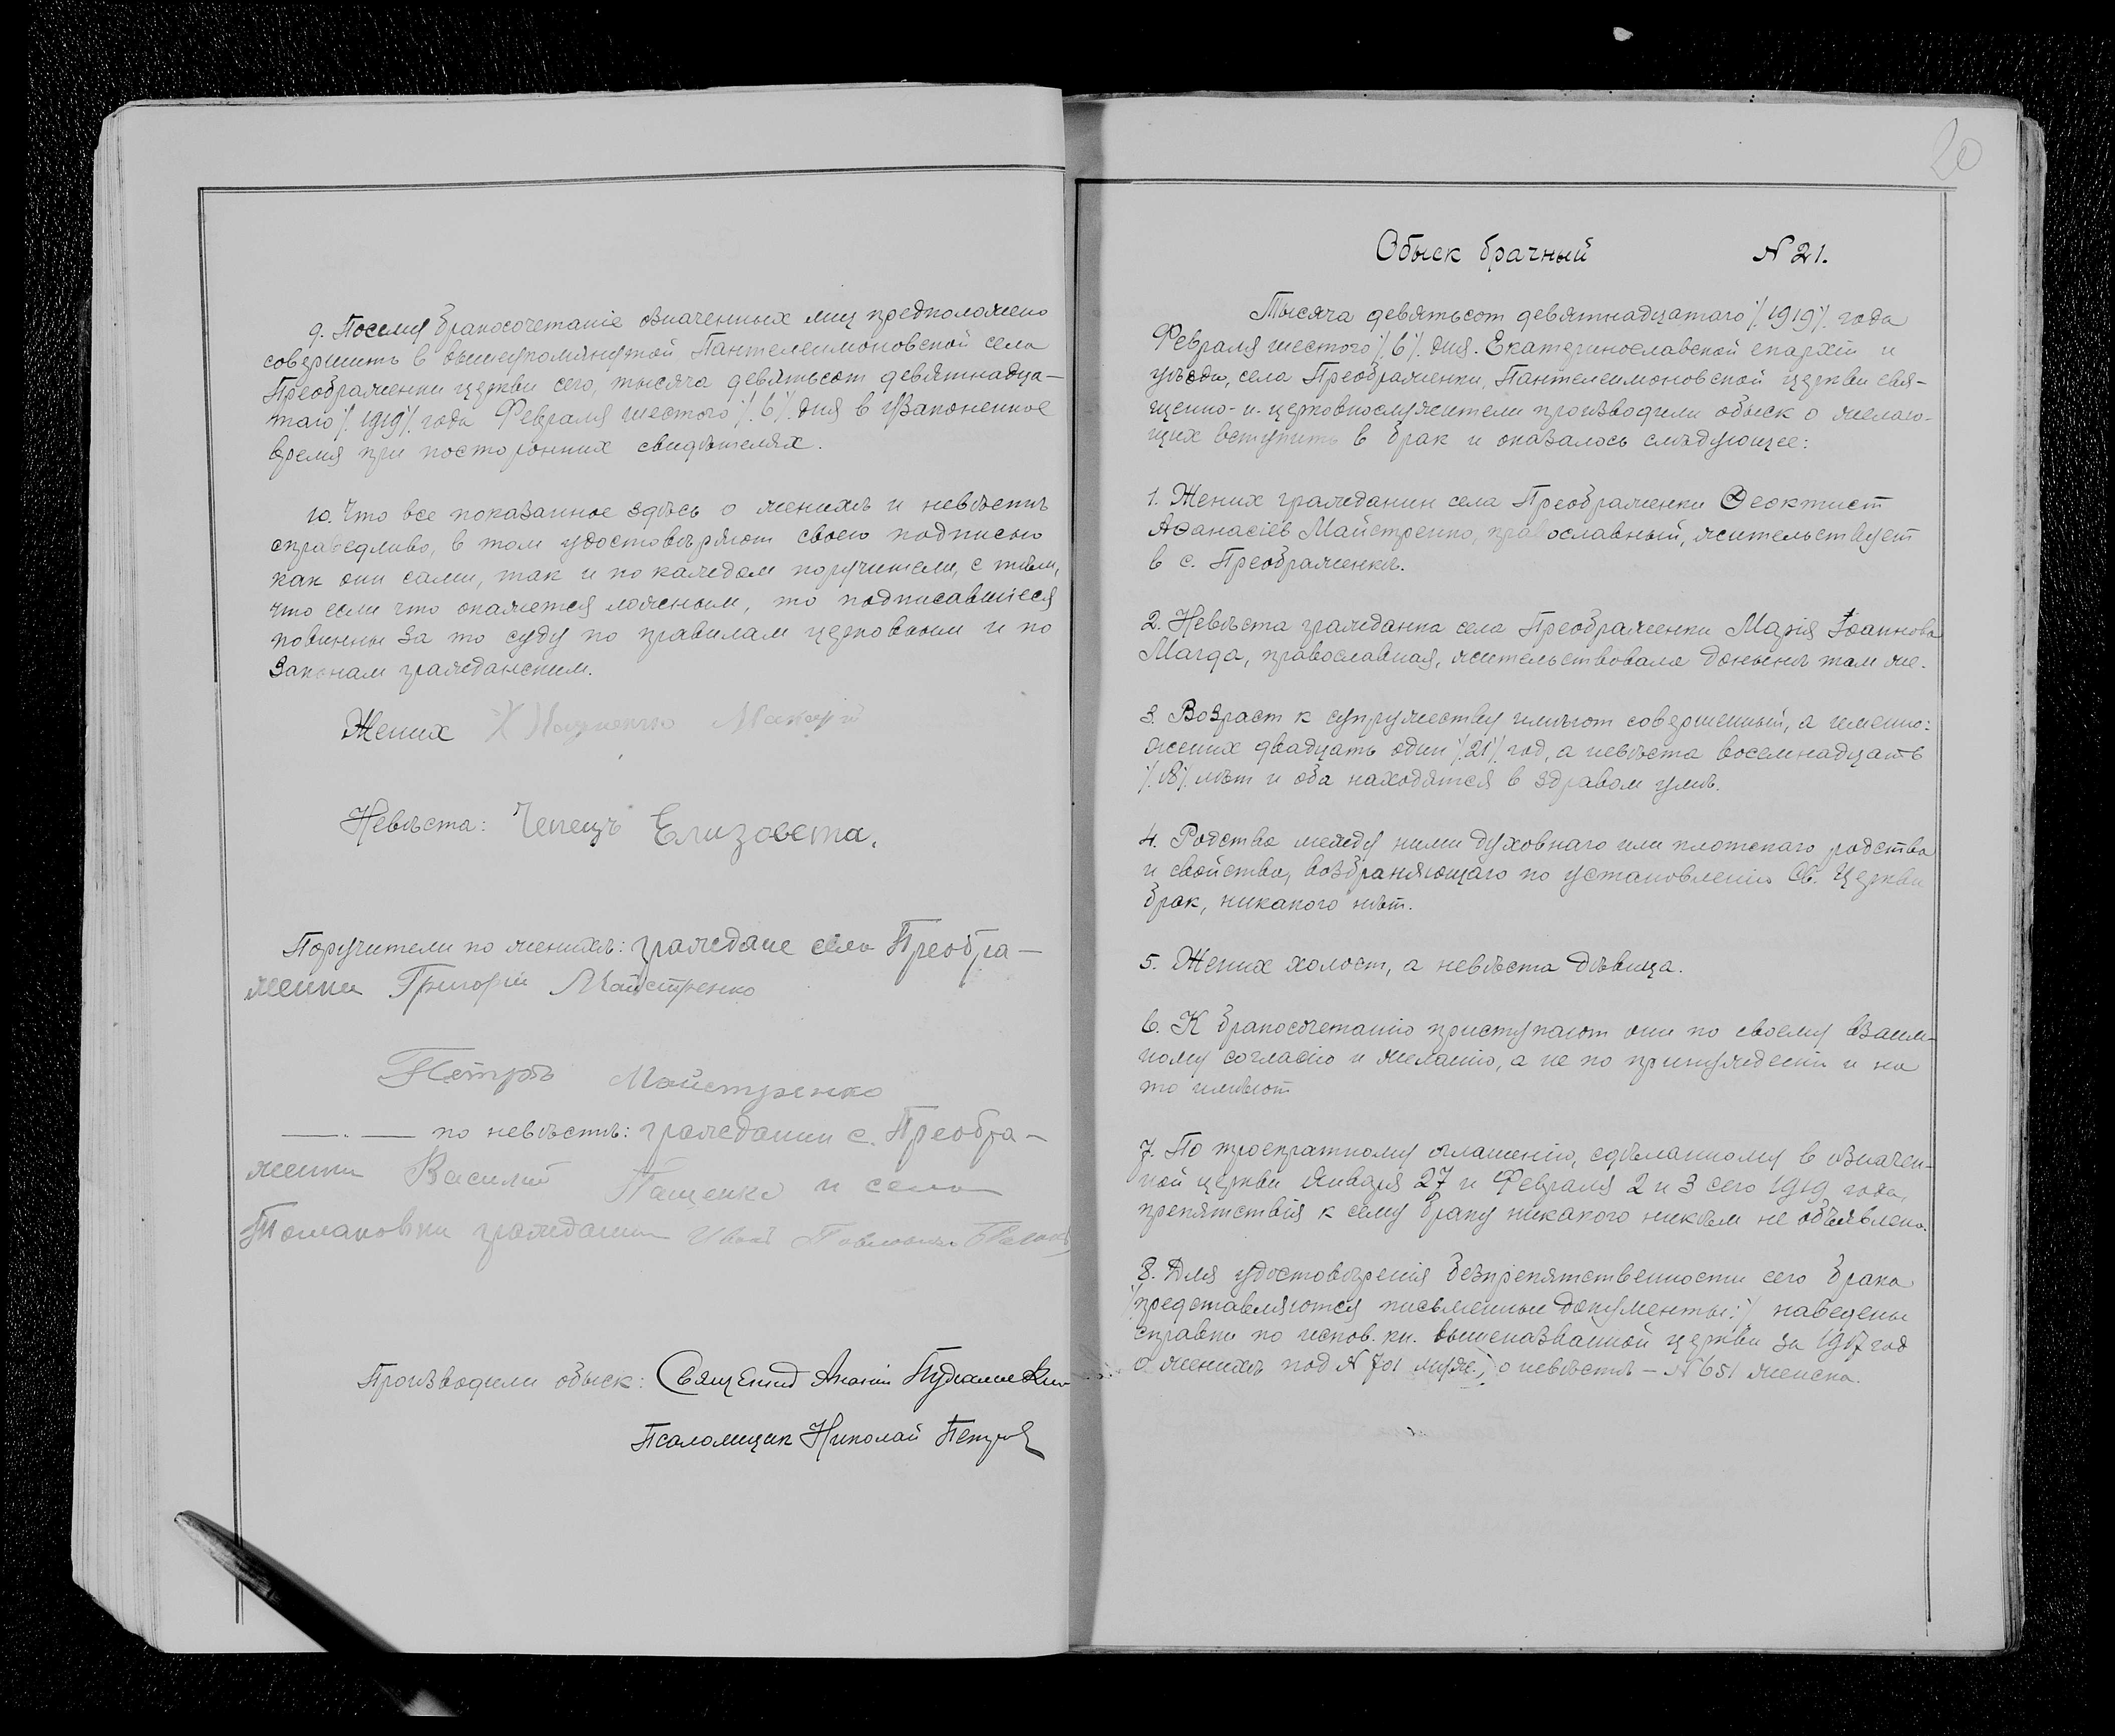 9. Посему бракосочетаніе означенных лиц предположено
совершить в вышеупомянутой Пантелеимоновской села
Преображенки церкви сего, тысяча девятьсот девятнадца-
таго /.1919/. года Февраля шестого /.6/. дня в узаконенное
время при посторонних свидѣтелях.
10. Что все показанное здѣсь о женихѣ и невѣстѣ
справедливо, в том удостовѣряют своею подписью
как они сами, так и по каждом поручители, с тѣм,
что если что окажется ложным, то подписавшіеся
повинны за то суду по правилам церковным и по
законам гражданским.
Жених
Невѣста: Чепець Елизовета.
Поручители по женихѣ: граждане села Преобра-
женки Григорій Майстренко
Петръ Майстренко
—.— по невѣстѣ: гражданин с. Преобра-
женки Василий Пащенко и села
Томаковки гражданин Иван
Производили обыск: Священник
Псаломщик Николай Петров
20
Обыск брачный N 21.
Тысяча девятьсот девятнадцатаго /.1919/. года
Февраля шестого /.6/. дня. Екатеринославской епархіи и
уѣзда, села Преображенки, Пантелеимоновской церкви свя-
щенно- и- церковнослужители производили обыск о желаю-
щих вступить в брак и оказалось слѣдующее:
1. Жених гражданин села Преображенки Ѳеоктист
Аѳанасіев Майстренко, православный, жительствует
в с. Преображенкѣ.
2. Невѣста гражданка села Преображенки Марія Іоаннова
Магда, православная, жительствовала донынѣ там же.
3. Возраст к супружеству имѣют совершенный, а именно:
жених двадцать один /.21/. год, а невѣста восемнадцать
/.18/. лѣт и оба находятся в здравом умѣ.
4. Родства между ними духовнаго или плотскаго родства
и свойства, возбраняющаго по установленію Св. Церкви
брак, никакого нѣт.
5. Жених холост, а невѣста дѣвица.
6. К бракосочетанію приступают они по своему взаим-
ному согласію и желанію, а не по принужденію и на
то имѣют
7. По троекратному оглашенію, сдѣланному в означен-
ной церкви Января 27 и Февраля 2 и 3 сего 1919 года,
препятствія к сему браку никакого никѣм не объявлено.
8. Для удостовѣренія безпрепятственности сего брака
представляются письменные документы:/. наведены
справки по испов. кн. вышеназванной церкви за 1917 год
о женихѣ под N 701 муж., о невѣстѣ - N 651 женска.